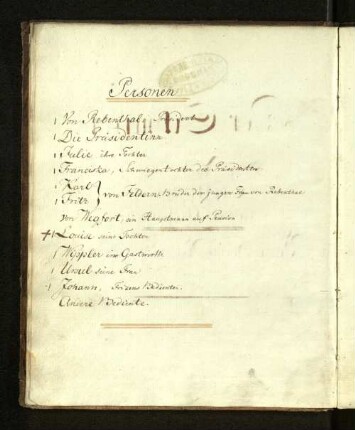 Personen
1 Von Rebenthal, Präsident
1 Die Präsidentinn
1 Julie ihre Tochter
1 Franciska, Schwiegertochter des Präsidenten
1 Karl
1 Fritz } von Feldern, Brüder der jungen Frau von Rebenthal
von Wegfort, ein Hauptmann auf Pension
1 Louise seine Tochter
1 Wippler ein Gastwirth
1 Ursul seine Frau
1 Johann, Fritzens Bedienter.
Andere Bediente.